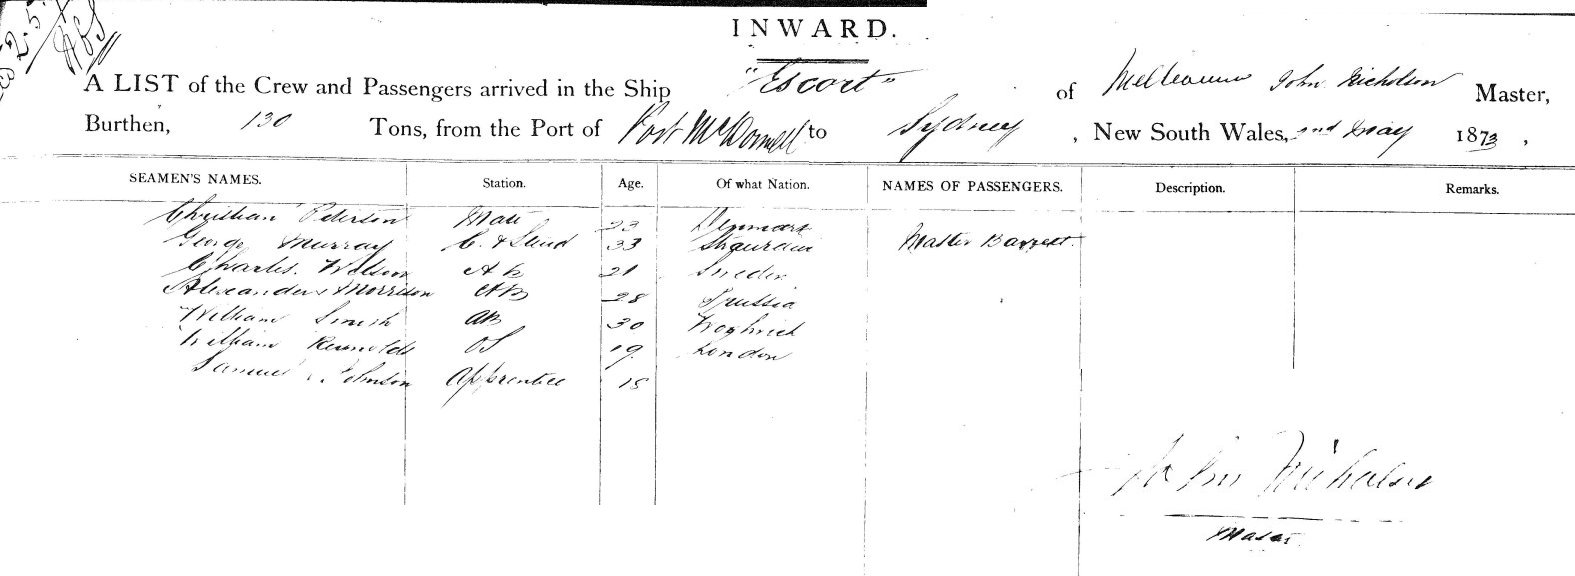 INWARD.
A LIST of the Crew and Passengers arrived in the Ship "Escort" of Melbourne John Nicholson Master,
Burthen, 130 Tons, from the Port of Port McDonnell to Sydney, New South Wales, 2nd May 1873,
SEAMEN'S NAMES. Station. Age. Of what Nation. NAMES OF PASSENGERS. Description. Remarks.
Christian Peterson Mate 23 Denmark
George Murray C. & Stead 33 Master Barrett.
Charles. Wilson AB 21 Sweden
Alexander Morrison AB 28 Prussia
William Smith AB 30 Woolwich
William Reynolds OS 19 London
Samuel Johnson Apprentice 18
John Nicholson
Master